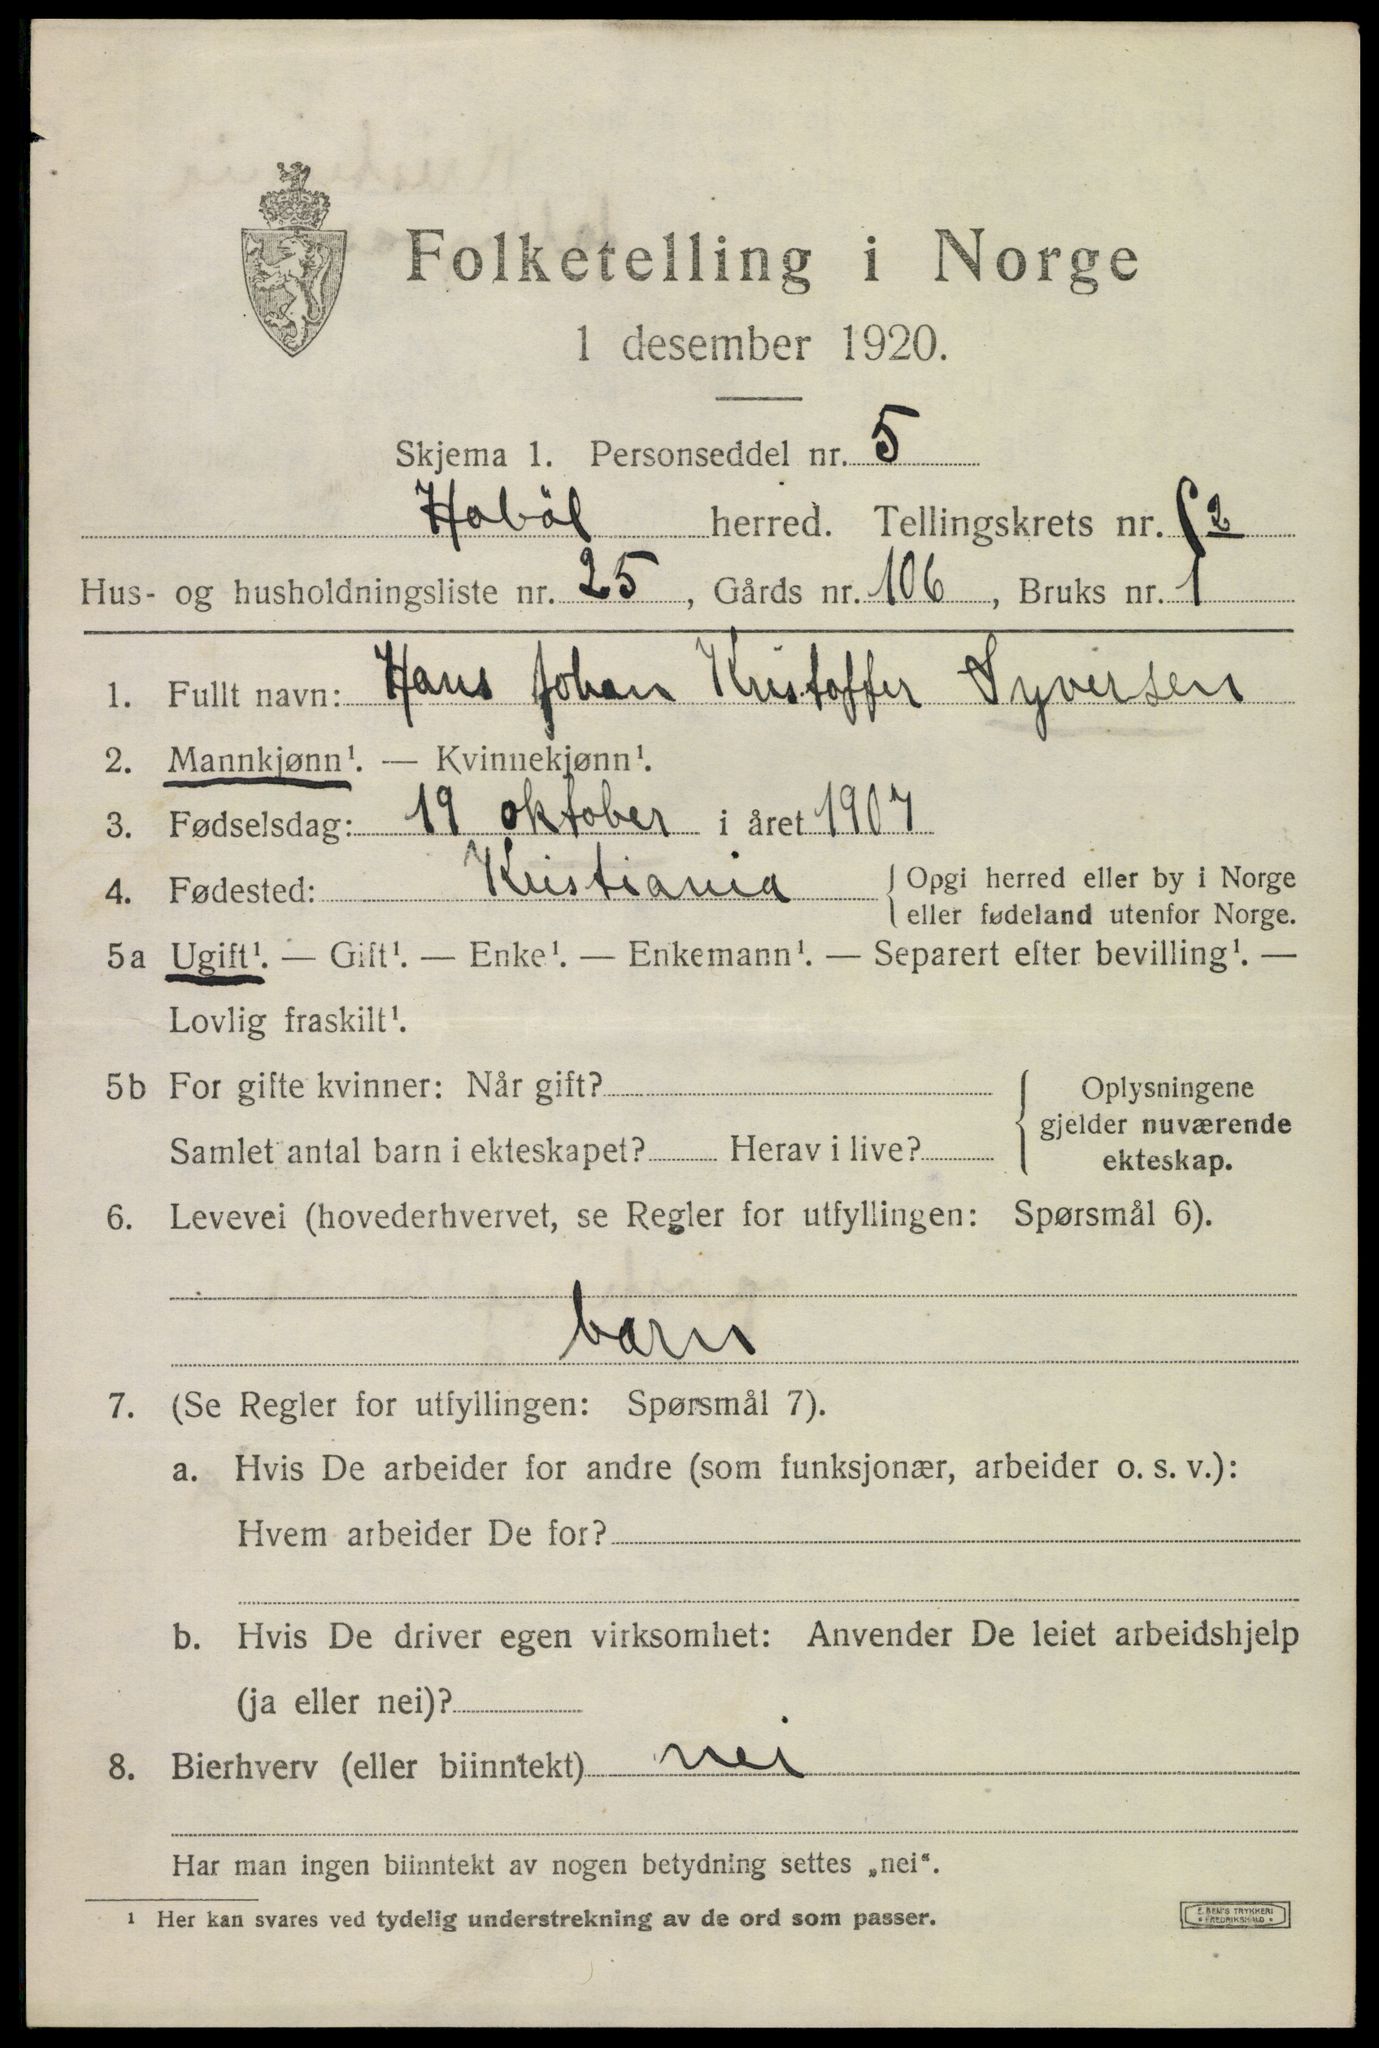 Folketelling i Norge
1 desember 1920.
Skjema 1. Personseddel nr. 5
Hoböl herred. Tellingskrets nr. 2
Hus- og husholdningsliste nr. 25, Gårds nr. 106, Bruks nr. 1
1. Fullt navn: Hans Johan Kristoffer Syversen
2. Mannkjønn¹. — Kvinnekjønn¹.
3. Fødselsdag: 19 oktober i året 1907
4. Fødested: Kristiania { Opgi herred eller by i Norge
eller fødeland utenfor Norge.
5a Ugift¹. — Gift¹. — Enke¹. — Enkemann¹. — Separert efter bevilling¹. —
Lovlig fraskilt¹.
5b For gifte kvinner: Når gift?
Samlet antal barn i ekteskapet? Herav i live?
Oplysningene
gjelder nuværende
ekteskap.
6. Levevei (hovederhvervet, se Regler for utfyllingen: Spørsmål 6).
barn
7. (Se Regler for utfyllingen: Spørsmål 7).
a. Hvis De arbeider for andre (som funksjonær, arbeider o. s. v.):
Hvem arbeider De for?
b. Hvis De driver egen virksomhet: Anvender De leiet arbeidshjelp
(ja eller nei)?
8. Bierhverv (eller biinntekt) nei
Har man ingen biinntekt av nogen betydning settes „nei“.
¹ Her kan svares ved tydelig understrekning av de ord som passer.
E. SEM'S TRYKKERI
FREDRIKSHALD